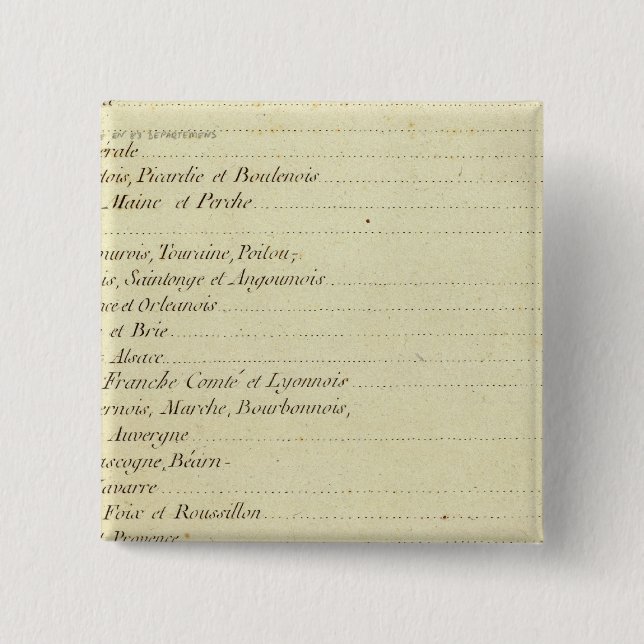 EN 83 DEPARTEMENS
érale
tois, Picardie et Boulenois
Maine et Perche
umurois, Touraine, Poitou,
is, Saintonge et Angoumois
nce et Orleanois
et Brie
Alsace
Franche Comté et Lyonnois
vernois, Marche, Bourbonnois,
Auvergne
ascogne, Béarn
Navarre
Foix et Roussillon
Provence